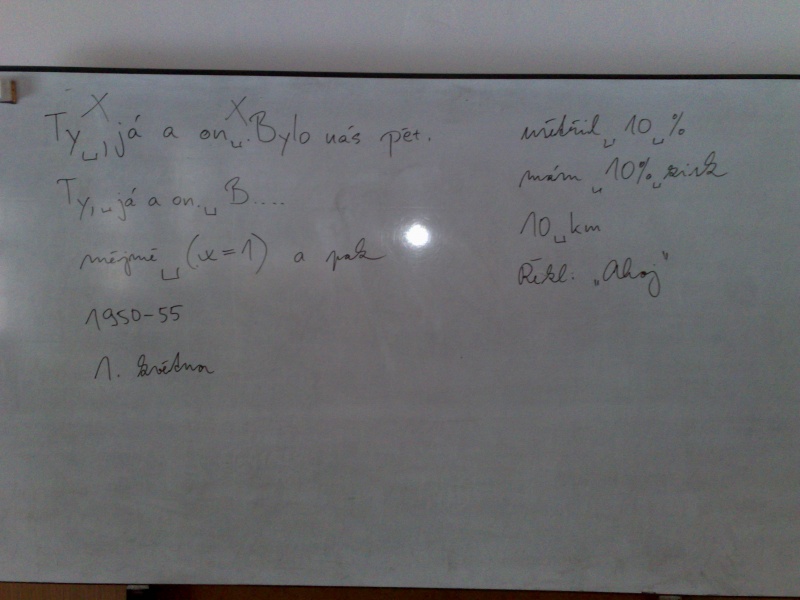 Ty␣, já a on␣. Bylo nás pět.
Ty,␣já a on.␣B....
mějmě␣(x=1) a pak
1950-55
1. května
␣10␣%
mám␣10%␣zisk
10␣km
Řekl: „Ahoj"